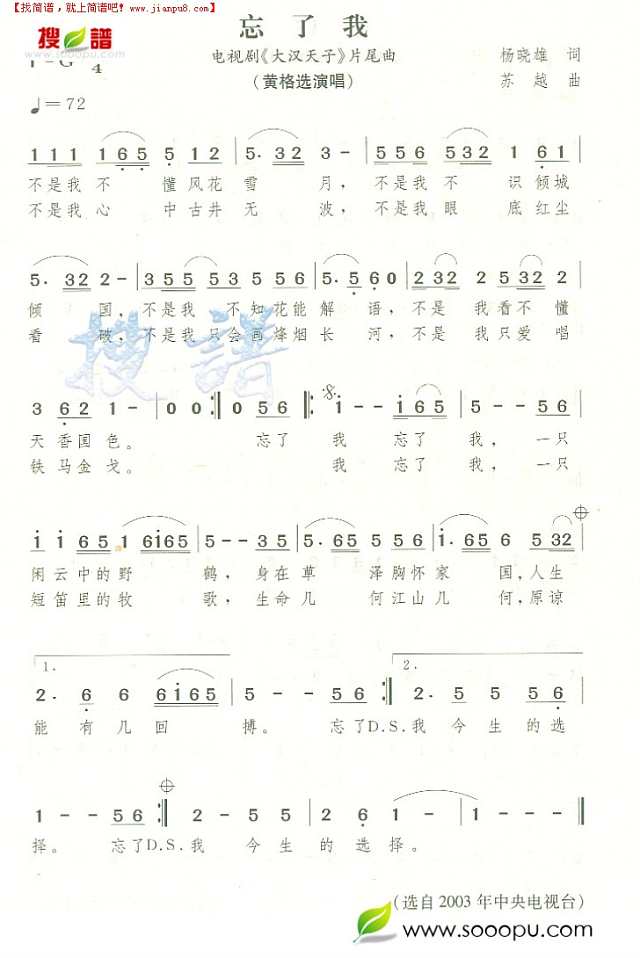 【找简谱，就上简谱吧！www.jianpu8.com】
搜谱
www.sooopu.com
忘了我
电视剧《大汉天子》片尾曲
杨晓雄 词
(黄格选演唱)
苏越 曲
4
♩=72
1 1 1 1 6 5 5 1 2 | 5. 3 2 3 - | 5 5 6 5 5. 3 2 1 6 1 |
不是我不 懂风花 雪 月，不是我不 识倾城
不是我心 中古井 无 波，不是我眼 底红尘
5. 3 2 2 - | 3 5 5 5 3 5 5 5 3 | 5. 5 6 0 | 2 3 2 2 3 2 2 |
倾 国，不是我 不知花能解 语，不是 我看不 懂
看 破，不是我只会画烽烟长 河，不是 我只爱 唱
搜谱
3 6 2 1 - | 0 0 | 0 5 6 :| 1 - - 1 6 5 | 5 - - 5 6 |
天香国色。 忘了 我 忘了 我，一只
铁马金戈。 我 忘了 我，一只
1 1 6 5 1 6 1 6 5 | 5 - - 3 5 | 5. 6 5 5 5 5 | 1. 6 5 6 5 3 2 |
闲云中的野 鹤，身在草 泽胸怀家 国，人生
短笛里的牧 歌，生命几 何江山几 何，原谅
1.
2.
2. 6 6 6 1 6 5 | 5 - - 5 6 :| 2. 5 5 5 6 |
能 有 几 回 搏。 忘了D.S.我 今 生 的 选
1 - - 5 6 :| 2 - 5 5 | 5 - - 5 | 2 - 6 - | 1 - - - ‖
择。 忘了D.S.我 今 生 的选择。
(选自2003年中央电视台)
www.sooopu.com